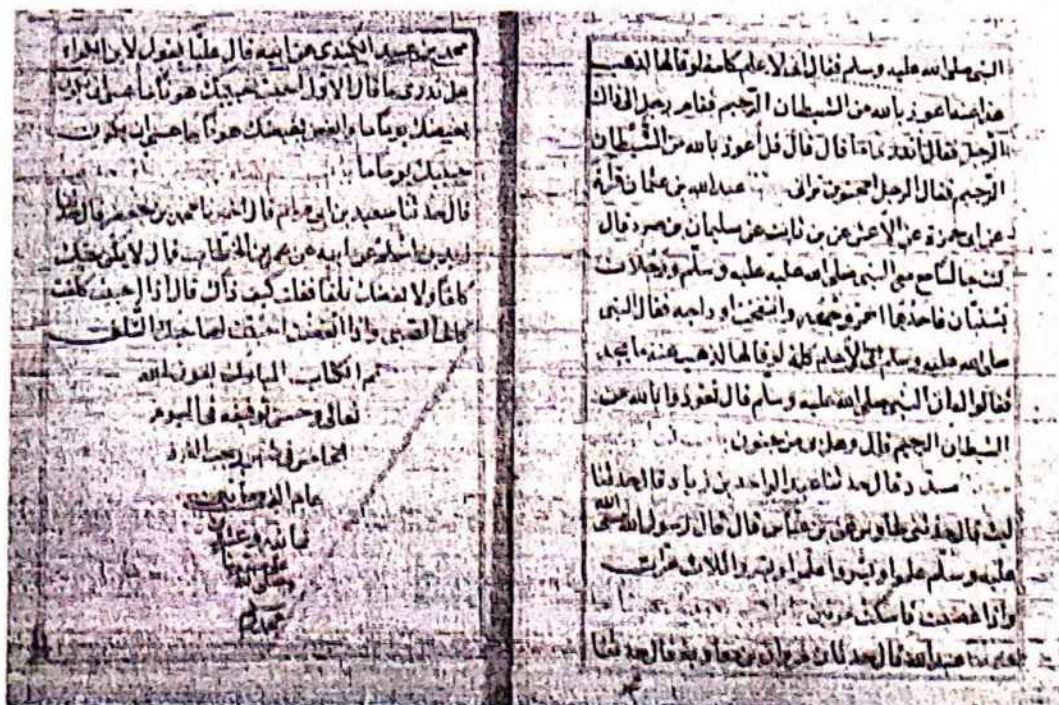 النبي صلى الله عليه وسلم فقال اني لا علم كلمة لو قالها لذهب
هذا عنه اعوذ بالله من الشيطان الرجيم فقام رجل الى ذاك
الرجل فقال اتدرى ما قال قال قل اعوذ بالله من الشيطان
الرجيم فقال الرجل امجنون تراني عبدالله بن عثمان
عن ابى حمزة عن الاعمش عن بن ثابت عن سليمان بن صرد قال
كنت جالسا مع النبي صلى الله عليه وسلم ورجلان
يستبان فاحدهما احمر وجهه وانتفخت اوداجه فقال النبي
صلى الله عليه وسلم انى لأعلم كلمة لو قالها لذهب عنه ما يجد
فقالوا له ان النبي صلى الله عليه وسلم قال تعوذ بالله من
الشيطان الرجيم قال وهل بى من جنون
مسدد قال حدثنا عبد الواحد بن زياد قال حدثنا
ليث قال حدثنى طاوس عن بن عباس قال قال رسول الله صلى الله
عليه وسلم علموا ويسروا علموا ويسروا ثلاث مرات
واذا غضبت فاسكت مرتين
عبدالله قال حدثنا مروان بن معاوية قال حدثنا
محمد بن عبيد الكندى عن ابيه قال عليا يقول لابن الكواء
هل تدرى ما قال الاول احبب حبيبك هونا ما عسى ان يكون
بغيضك يوما ما وابغض بغيضك هونا ما عسى ان يكون
حبيبك يوما ما
قال حدثنا سعيد بن ابى مريم قال محمد بن جعفر قال حدثنا
زيد بن اسلم عن ابيه عن عمر بن الخطاب قال لا يكن حبك
كلفا ولا بغضك تلفا فقلت كيف ذاك قال اذا احببت كلفت
كلف الصبى واذا ابغضت احببت لصاحبك التلف
تم الكتاب المبارك بعون الله
تعالى وحسن توفيقه فى اليوم
شهر رجب الفرد
عام
محمد